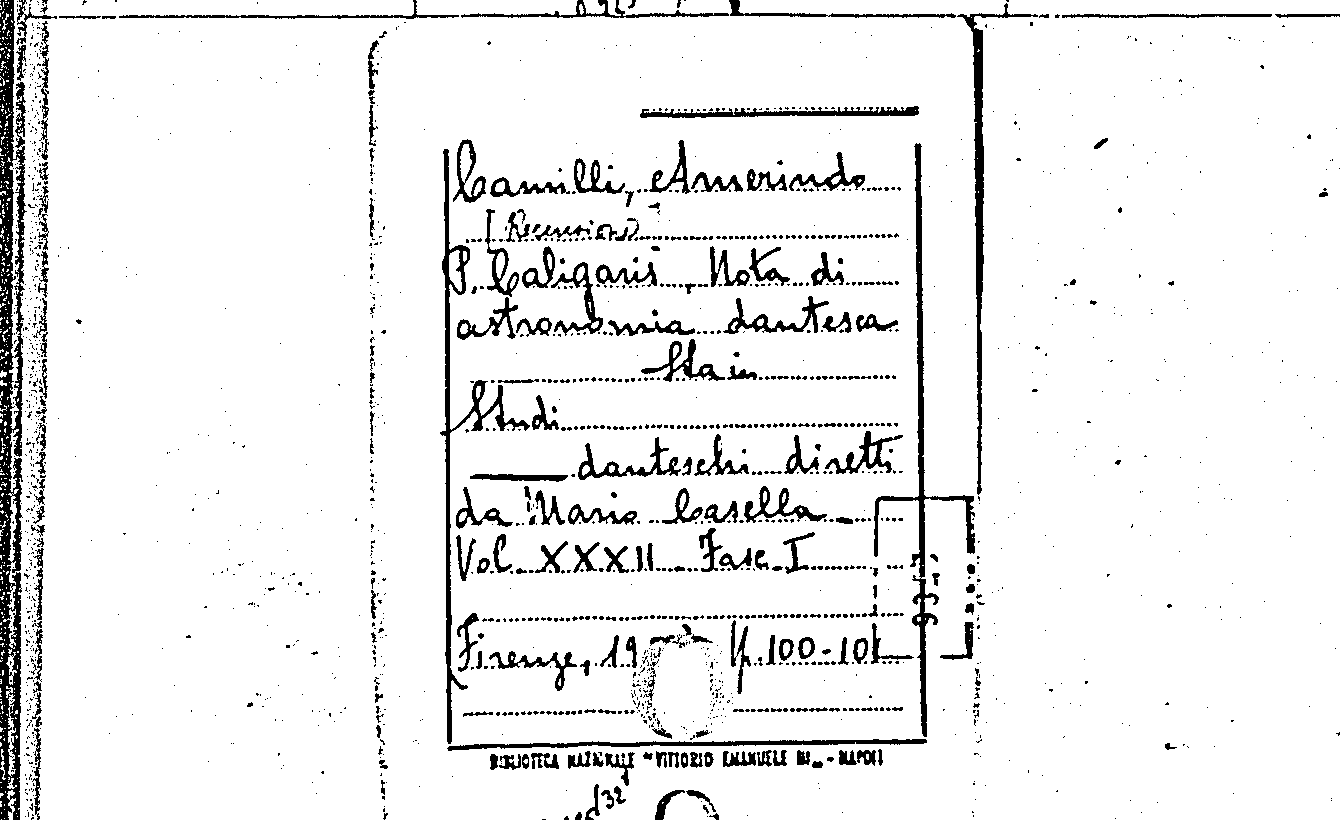 Camilli, Amerindo
[Recensione]
P. Caligaris, Nota di
astronomia dantesca
Sta in
Studi
danteschi diretti
da Mario Casella
Vol. XXXII. Fasc. I
Firenze, 19 pp. 100-101
BIBLIOTECA NAZIONALE "VITTORIO EMANUELE III" - NAPOLI